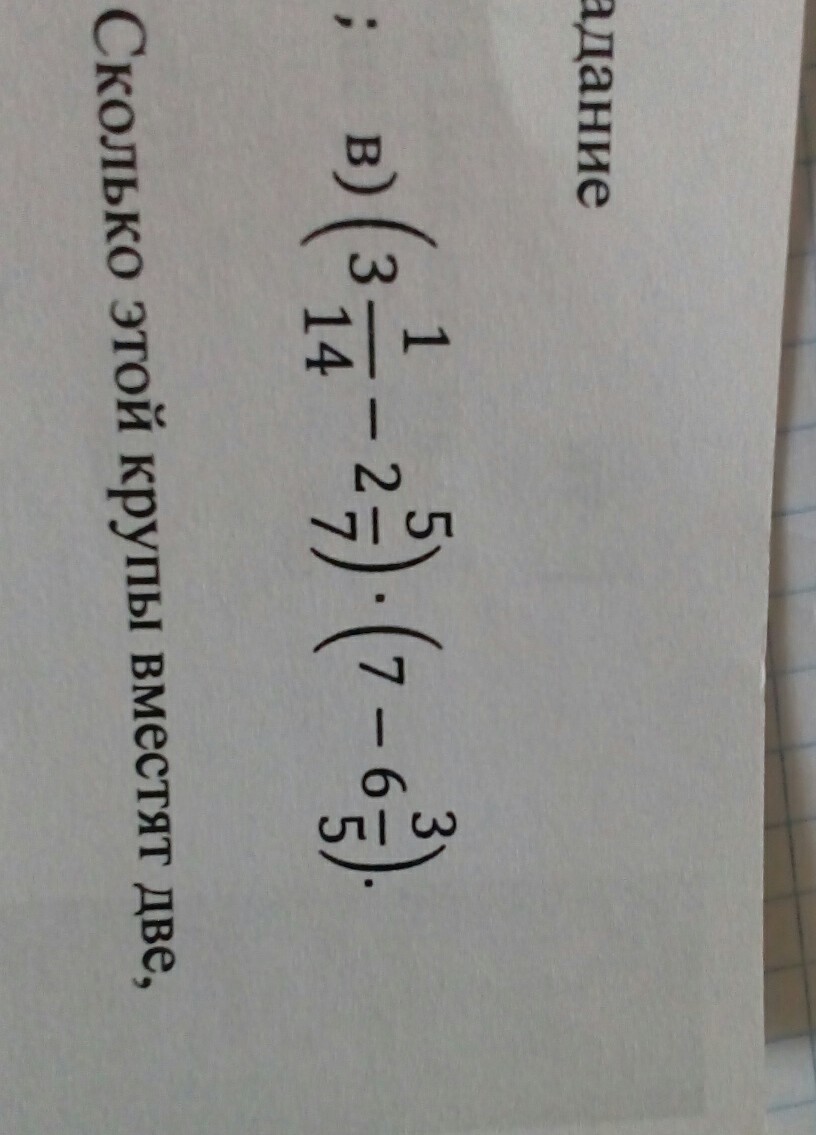 адание
; в) (3 1/14 − 2 5/7) · (7 − 6 3/5).
Сколько этой крупы вместят две,